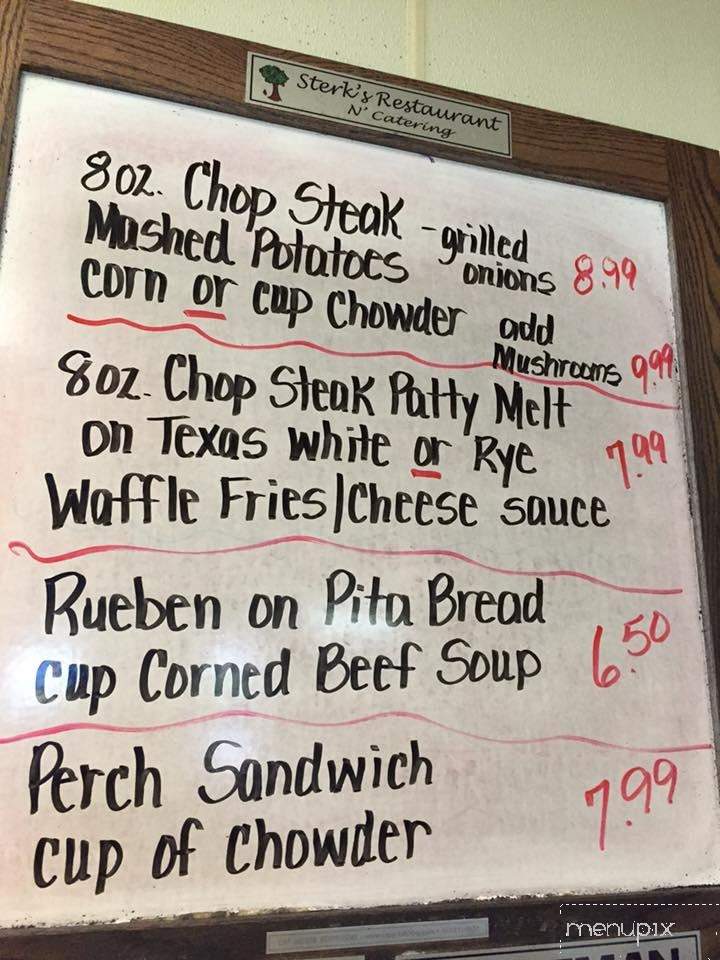 Sterk's Restaurant
N' Catering
8 oz. Chop Steak - grilled
Mashed Potatoes onions 8.99
corn or cup Chowder add
Mushrooms 9.99
8 oz. Chop Steak Patty Melt
on Texas white or Rye 7.99
Waffle Fries/Cheese sauce
Rueben on Pita Bread
cup Corned Beef Soup 6.50
Perch Sandwich
cup of chowder 7.99
menupix